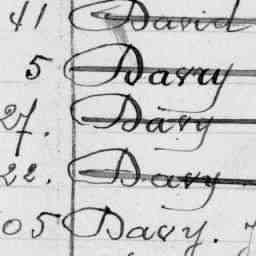 41 David
5 Davy
27. Davy
22. Davy
05 Davy.